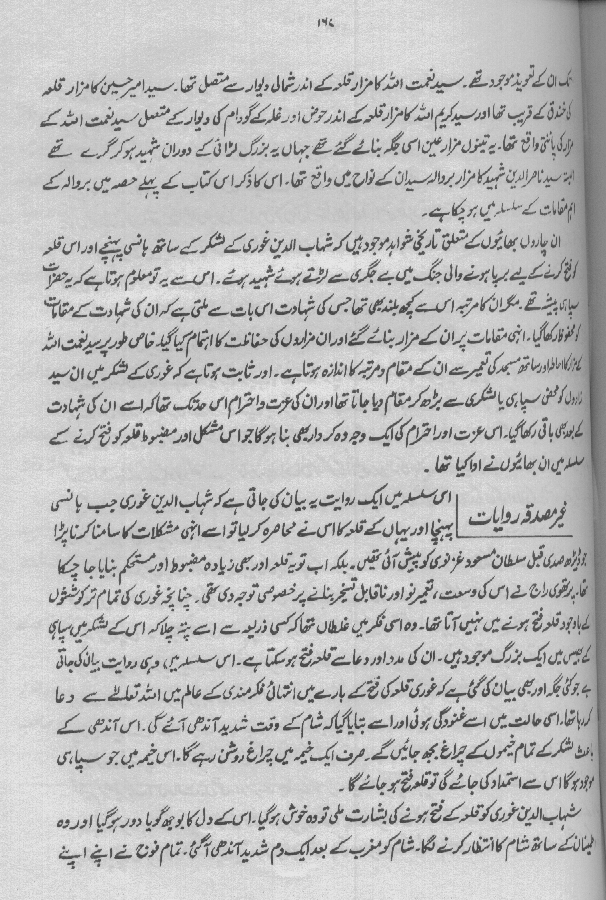 ۱۶۷
تک ان کے تعویذ موجود تھے۔ سید نعمت اللہ کا مزار قلعہ کے اندر شمالی دیوار سے متصل تھا۔ سید امیر حسین کا مزار قلعہ
کی خندق کے قریب تھا اور سید کریم اللہ کا مزار قلعہ کے اندر حوض اور غلہ کے گودام کی دیوار کے متصل سید نعمت اللہ کے
مزار کی پائنتی واقع تھا۔ یہ تینوں مزار عین اسی جگہ بنائے گئے تھے جہاں یہ بزرگ لڑائی کے دوران شہید ہو کر گرے تھے
البتہ سید ناصر الدین شہید کا مزار بروالہ سیدان کے نواح میں واقع تھا۔ اس کا ذکر اس کتاب کے پہلے حصہ میں بروالہ کے
اہم مقامات کے سلسلہ میں ہو چکا ہے۔
ان چاروں بھائیوں کے متعلق تاریخی شواہد موجود ہیں کہ شہاب الدین غوری کے لشکر کے ساتھ ہانسی پہنچے اور اس قلعہ
کو فتح کرنے کے لیے برپا ہونے والی جنگ میں بے جگری سے لڑتے ہوئے شہید ہوئے۔ اس سے یہ تو معلوم ہوتا ہے کہ یہ حضرات
سپاہی پیشہ تھے۔ مگر ان کا مرتبہ اس سے کچھ بلند بھی تھا جس کی شہادت اس بات سے ملتی ہے کہ ان کی شہادت کے مقامات
کو محفوظ رکھا گیا۔ انہی مقامات پر ان کے مزار بنائے گئے اور ان مزاروں کی حفاظت کا اہتمام کیا گیا۔ خاص طور پر سید نعمت اللہ
کے مزار کا احاطہ اور ساتھ مسجد کی تعمیر سے ان کے مقام و مرتبہ کا اندازہ ہوتا ہے۔ اور ثابت ہوتا ہے کہ غوری کے لشکر میں ان سید
زادوں کو محض سپاہی یا لشکری سے بڑھ کر مقام دیا جاتا تھا اور ان کی عزت و احترام اس حد تک تھا کہ اسے ان کی شہادت
کے بعد بھی باقی رکھا گیا۔ اس عزت اور احترام کی ایک وجہ وہ کردار بھی بنا ہوگا جو اس مشکل اور مضبوط قلعہ کو فتح کرنے کے
سلسلہ میں ان بھائیوں نے ادا کیا تھا۔
غیر مصدقہ روایات
اس سلسلہ میں ایک روایت یہ بیان کی جاتی ہے کہ شہاب الدین غوری جب ہانسی
پہنچا اور یہاں کے قلعہ کا اس نے محاصرہ کر لیا تو اسے انہی مشکلات کا سامنا کرنا پڑا
جو ڈیڑھ صدی قبل سلطان مسعود غزنوی کو پیش آئی تھیں۔ بلکہ اب تو یہ قلعہ اور بھی زیادہ مضبوط اور مستحکم بنایا جا چکا
تھا۔ پرتھوی راج نے اس کی وسعت، تعمیر نو اور ناقابل تسخیر بنانے پر خصوصی توجہ دی تھی۔ چنانچہ غوری کی تمام تر کوششوں
کے باوجود قلعہ فتح ہونے میں نہیں آتا تھا۔ وہ اسی فکر میں غلطاں تھا کہ کسی ذریعہ سے اسے پتہ چلا کہ اس کے لشکر میں سپاہی
کے بھیس میں ایک بزرگ موجود ہیں۔ ان کی مدد اور دعا سے قلعہ فتح ہو سکتا ہے۔ اس سلسلہ میں وہی روایت بیان کی جاتی
ہے جو کئی جگہ اور بھی بیان کی گئی ہے کہ غوری قلعہ کی فتح کے بارے میں انتہائی فکر مندی کے عالم میں اللہ تعالٰے سے دعا
کر رہا تھا۔ اسی حالت میں اسے غنودگی ہوئی اور اسے بتایا گیا کہ شام کے وقت شدید آندھی آئے گی۔ اس آندھی کے
باعث لشکر کے تمام خیموں کے چراغ بجھ جائیں گے۔ صرف ایک خیمہ میں چراغ روشن رہے گا۔ اس خیمہ میں جو سپاہی
موجود ہوگا اس سے استمداد کی جائے گی تو قلعہ فتح ہو جائے گا۔
شہاب الدین غوری کو قلعہ کے فتح ہونے کی بشارت ملی تو وہ خوش ہو گیا۔ اس کے دل کا بوجھ گویا دور ہو گیا اور وہ
اطمینان کے ساتھ شام کا انتظار کرنے لگا۔ شام کو مغرب کے بعد ایک دم شدید آندھی آگئی۔ تمام فوج نے اپنے اپنے